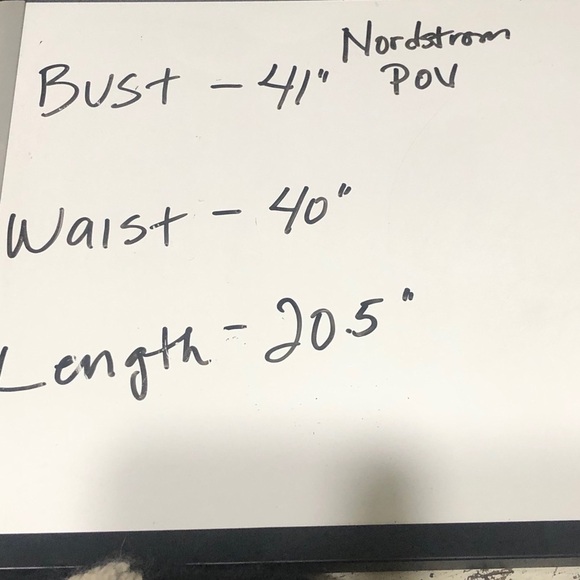 Nordstrom
POV
Bust - 41"
Waist - 40"
Length - 20.5"